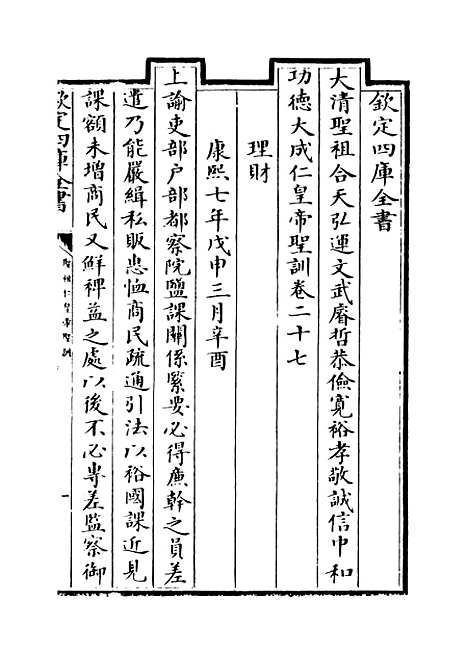 欽定四庫全書
大清聖祖合天弘運文武睿哲恭儉寛裕孝敬誠信中和
功德大成仁皇帝聖訓卷二十七
理財
康熙七年戊申三月辛酉
上諭吏部户部都察院鹽課關係緊要必得廉幹之員差
遣乃能嚴緝私販惠恤商民疏通引法以裕國課近見
課額未增商民又鮮裨益之處以後不必専差監察御
欽定四庫全書
聖祖仁皇帝聖訓
一